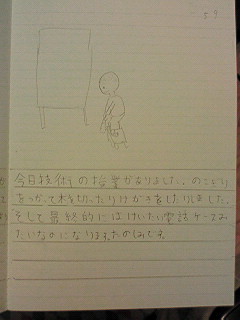 59
今日技術の授業がありました。のこぎり
をつかって木を切ったりけがきをしたりしました。
そして最終的にはけいたい電話ケースみ
たいなのになりました。たのしみです。